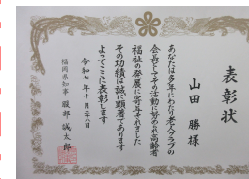 表彰状
山田 勝 様
あなたは多年にわたり老人クラブの
会員としてその活動に努められ高齢者
福祉の発展に寄与されました
その功績は誠に顕著であります
よってここに表彰します
令和七年十月二十八日
福岡県知事 服部誠太郎